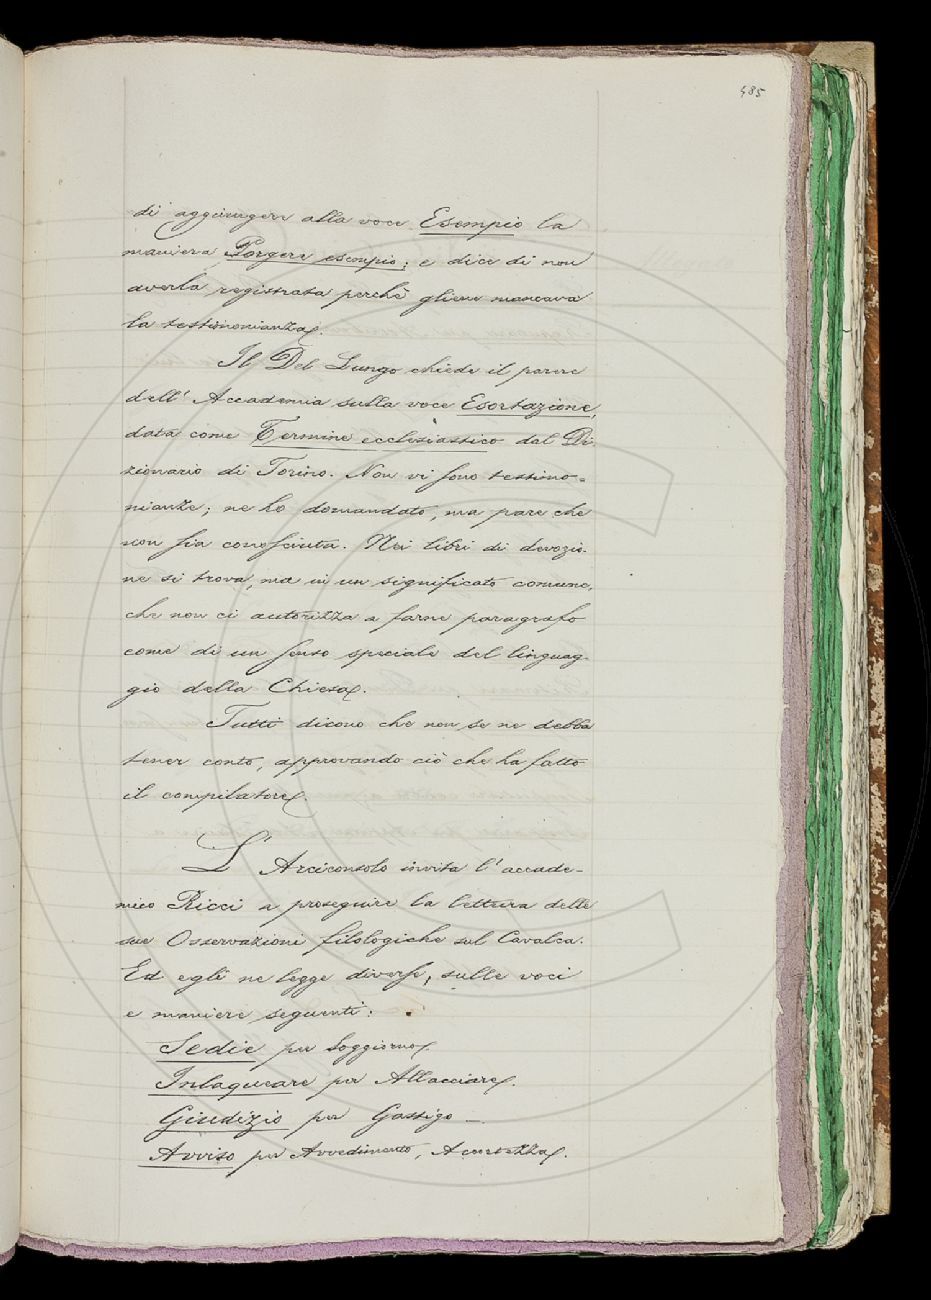 485
di aggiungere alla voce Esempio la
maniera Porgere esempio; e dice di non
averla registrata perchè gliene mancava
la testimonianza.
Il Del Lungo chiede il parere
dell' Accademia sulla voce Esortazione,
data come Termine ecclesiastico dal Di
zionario di Torino. Non vi sono testimo=
nianze; ne ho domandato, ma pare che
non sia conosciuta. Nei libri di devozio-
ne si trova, ma in un significato comune,
che non ci autorizza a farne paragrafo
come di un senso speciale del linguag-
gio della Chiesa.
Tutti dicono che non se ne debba
tener conto, approvando ciò che ha fatto
il compilatore.
L' Arciconsolo invita l' accade-
mico Ricci a proseguire la lettura delle
sue Osservazioni filologiche sul Cavalca.
Ed egli ne legge diverse, sulle voci
e maniere seguenti:
Sedie per Soggiorno.
Inlaqueare per Allacciare.
Giudizio per Gastigo —
Avviso per Avvedimento, Accortezza.